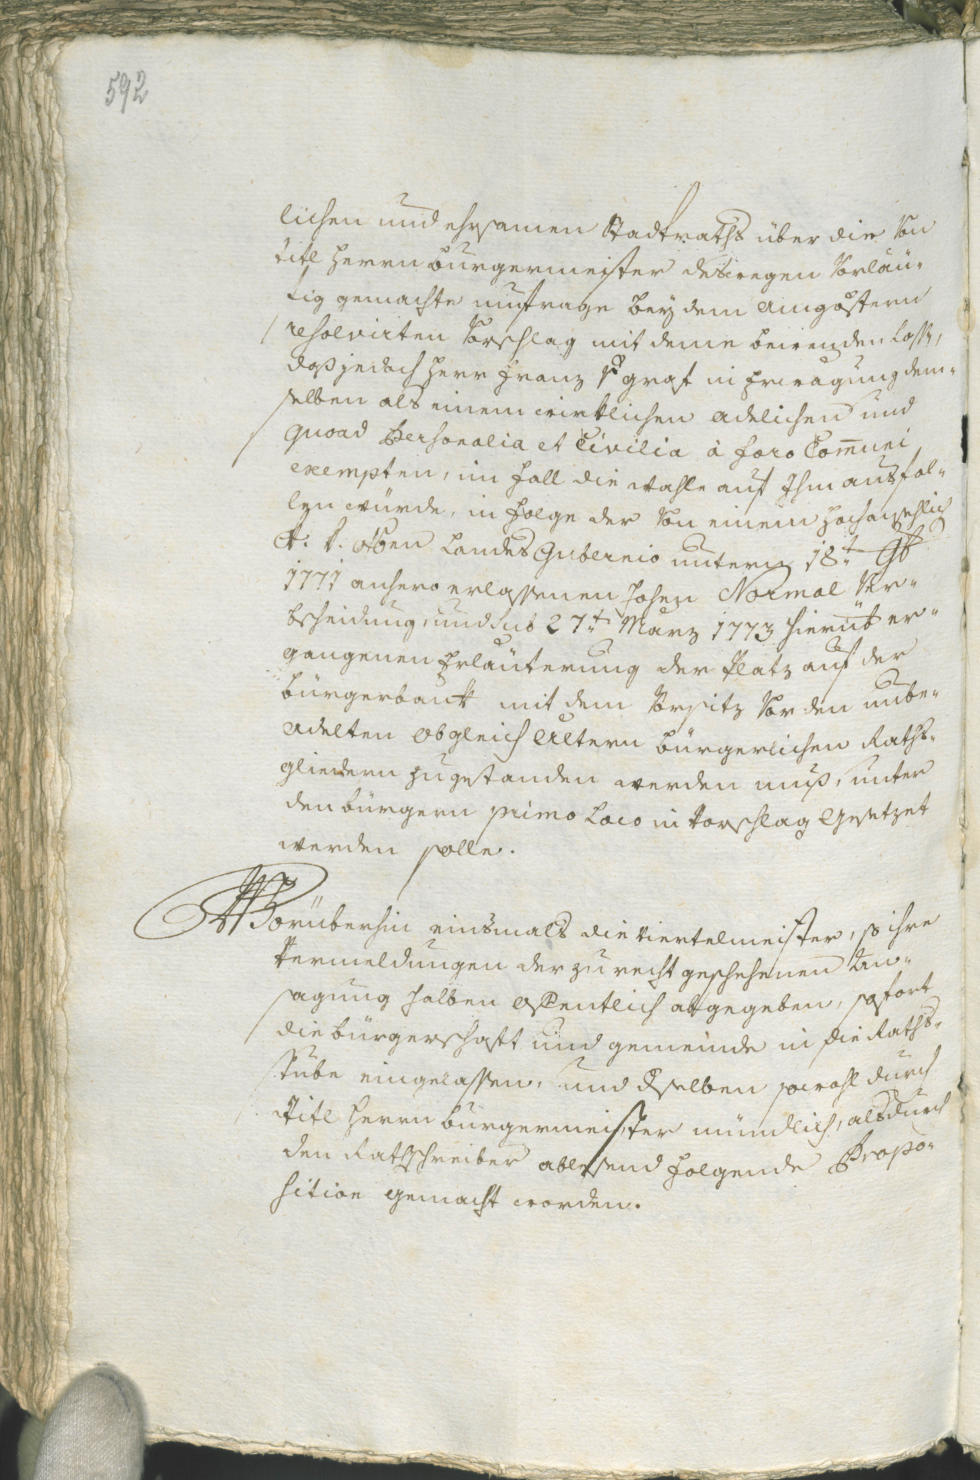 592
lichen und ehrsamen Stadtraths über die von
titl Herrn Burgermeister deswegen Vorläu-
fig gemachte umfrage bey dem
resolvirten Vorschlag mit deme bewenden lasse,
daß jedoch Herr Franz v Graf in Erwägung dem-
selben als einem wirklichen adelichen und
quoad Personalia et Civilia à foro Com̄uni
exempten, im fall die wahle auf Ihm ausfal-
len würde, in Folge der von einem hochansehlich
Landes Gubernio unterm 18t
1771 anhero erlassenen hohen Normal Ver-
bscheidung, und sub 27t März 1773 hierüb er-
gangenen Erläuterung der Platz auf der
bürgerbanck mit dem Vorsitz vor den unbe-
adelten obgleich ältern bürgerlichen Raths-
gliedern zugestanden werden muß, unter
den bürgern primo Loco in Vorschlag gesetzet
werden solle.
Worüberhin einsmals die viertelmeister, so ihre
Vermeldungen der zu recht geschehenen An-
sagung halben öffentlich abgegeben, sofort
die bürgerschaft und gemeinde in die Raths-
stube eingelassen, und dselben sowohl durch
Titl Herrn burgermeister mündlich, als durch
den Rathschreiber ablesend folgende Propo-
sition gemacht worden.